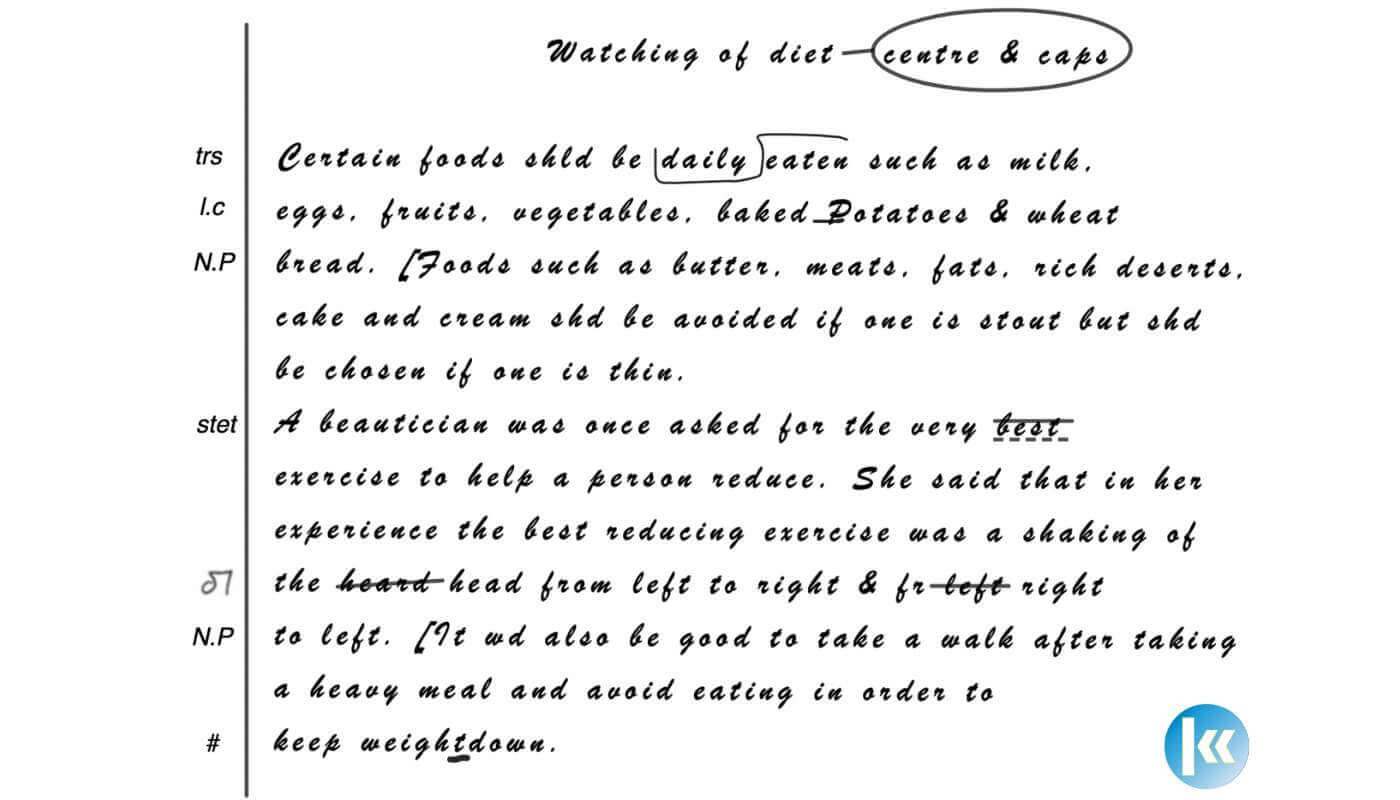 Watching of diet centre & caps
trs Certain foods shld be daily eaten such as milk,
l.c eggs, fruits, vegetables, baked Potatoes & wheat
N.P bread. [Foods such as butter, meats, fats, rich deserts,
cake and cream shd be avoided if one is stout but shd
be chosen if one is thin.
stet A beautician was once asked for the very best
exercise to help a person reduce. She said that in her
experience the best reducing exercise was a shaking of
the heard head from left to right & fr left right
N.P to left. [It wd also be good to take a walk after taking
a heavy meal and avoid eating in order to
# keep weightdown.